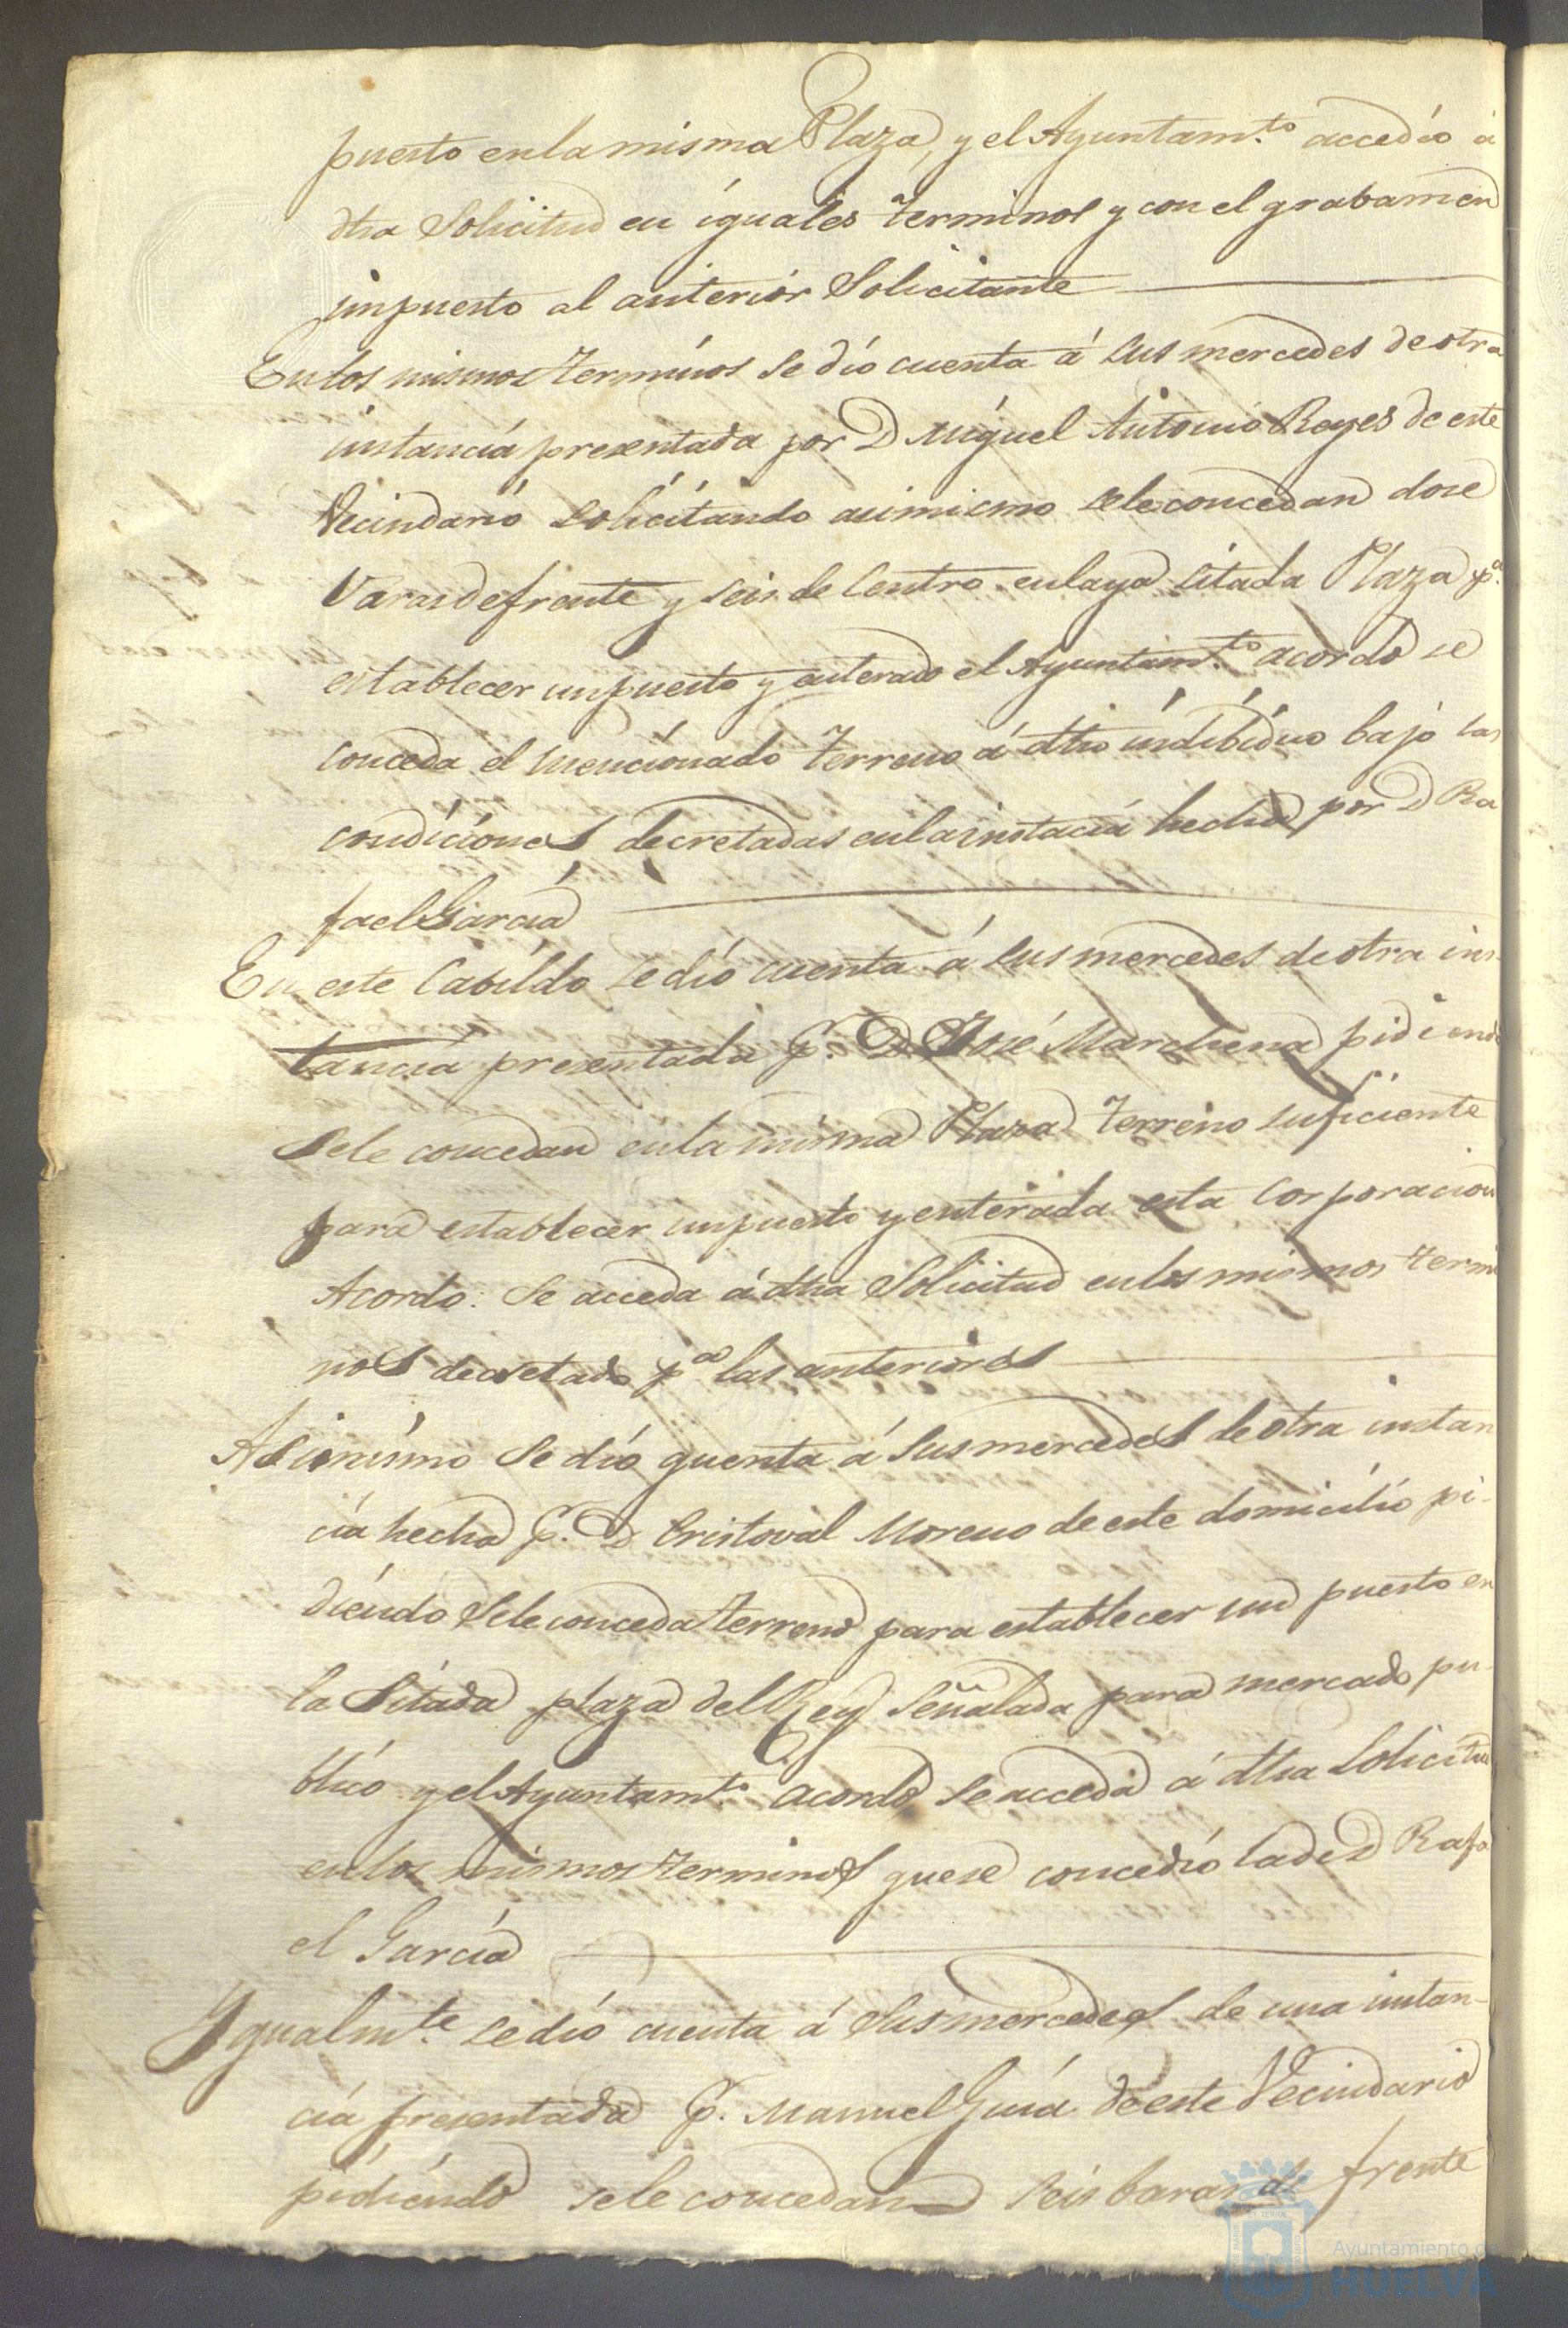 puesto en la misma Plaza, y el Ayuntam.to accedió á
dha Solicitud en iguales terminos y con el grabamen
impuesto al anterior Solicitante
En los mismos terminos se dió cuenta á sus mercedes de otra
instancia presentada por D Miguel Antonio Reyes de este
Vecindario solicitando asimismo se le concedan dose
Varas de frente y seis de Centro en la ya citada Plaza p.a
establecer un puesto y enterado el Ayuntam.to acordó se
conceda el mencionado terreno á dho indibiduo bajo las
condiciones decretadas en la instacia hecha por D Ra
fael Garcia
En este Cabildo se dió cuenta á sus mercedes de otra ins-
tancia presentada p. D José Marchena pidiendo
se le concedan en la misma Plaza terreno suficiente
para establecer un puesto y enterada esta Corporacion
Acordo: Se acceda á dha Solicitud en los mismos termi
nos decretado p.a las anteriores
Asimismo se dió quenta á sus mercedes de otra instan
cia hecha p. D Cristoval Moreno de este domicilio pi-
diendo se le conceda terreno para establecer un puesto en
la Sitada plaza del Rey Señalada para mercado pu-
blico y el Ayuntam.to acordó se acceda á dha Solicitud
en los mismos terminos que se concedió la de D Rafa
el Garcia
Ygualm.te se dió cuenta á sus mercedes de una instan-
cia presentada p. Manuel Guia de este Vecindario
pidiendo se le concedan seis baras de frente
Ayuntamiento de
HUELVA